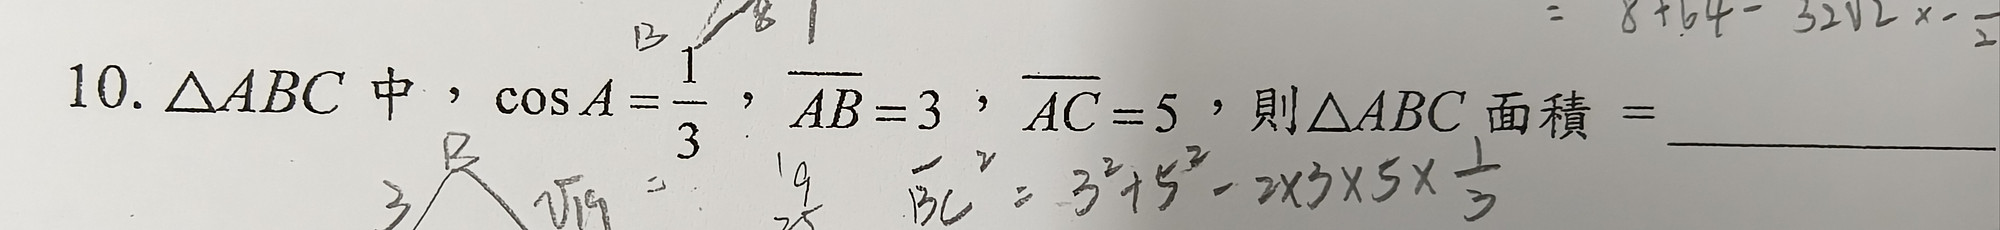 = 8+64- 32√2 × -
B 8
10. △ABC 中，cos A = 1/3，AB = 3，AC = 5，則△ABC 面積 =
B
3 √19 = 19 BC² = 3²+5²-2×3×5×1/3
25